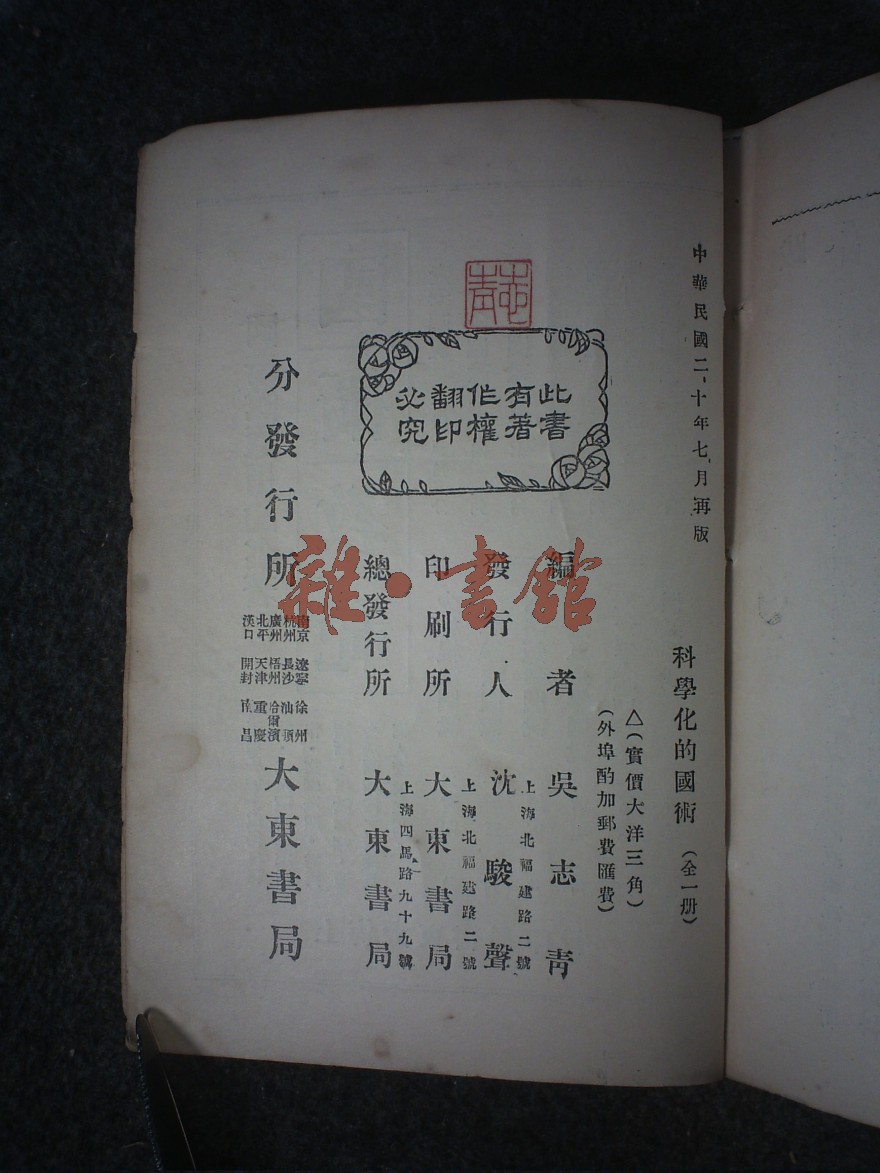 中華民國二十年七月再版
科學化的國術（全一册）
△（實價大洋三角）
（外埠酌加郵費匯費）
志青
此書
有著
作權
翻印
必究
編者 吳志靑
上海北福建路二號
發行人 沈駿聲
上海北福建路二號
印刷所 大東書局
上海四馬路九十九號
總發行所 大東書局
分發行所
南京 遼寧 徐州
杭州 長沙 汕頭
廣州 梧州 哈爾濱
北平 天津 重慶
漢口 開封 南昌
大東書局
雜·書館